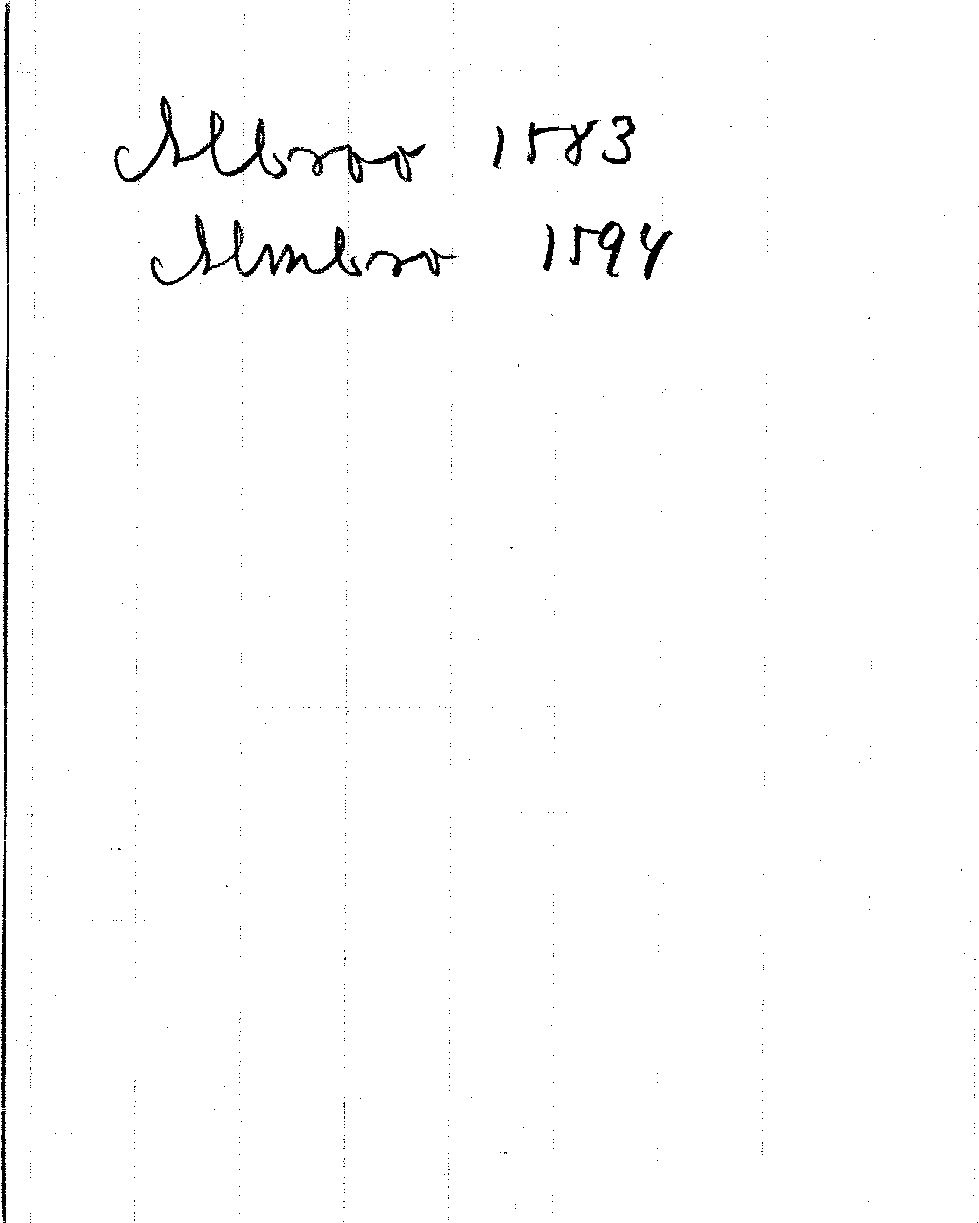 Albroo 1583
Almbro 1594